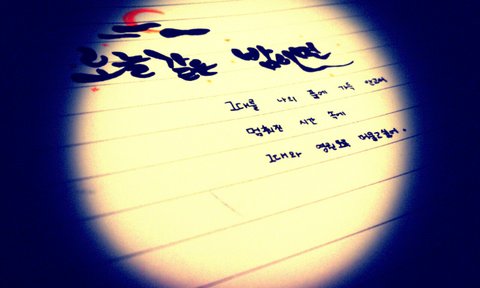 오늘 같은 밤이면
그대를 나의 품에 가득 안고서
멈춰진 시간 속에
그대와 영원토록 머물고싶어.